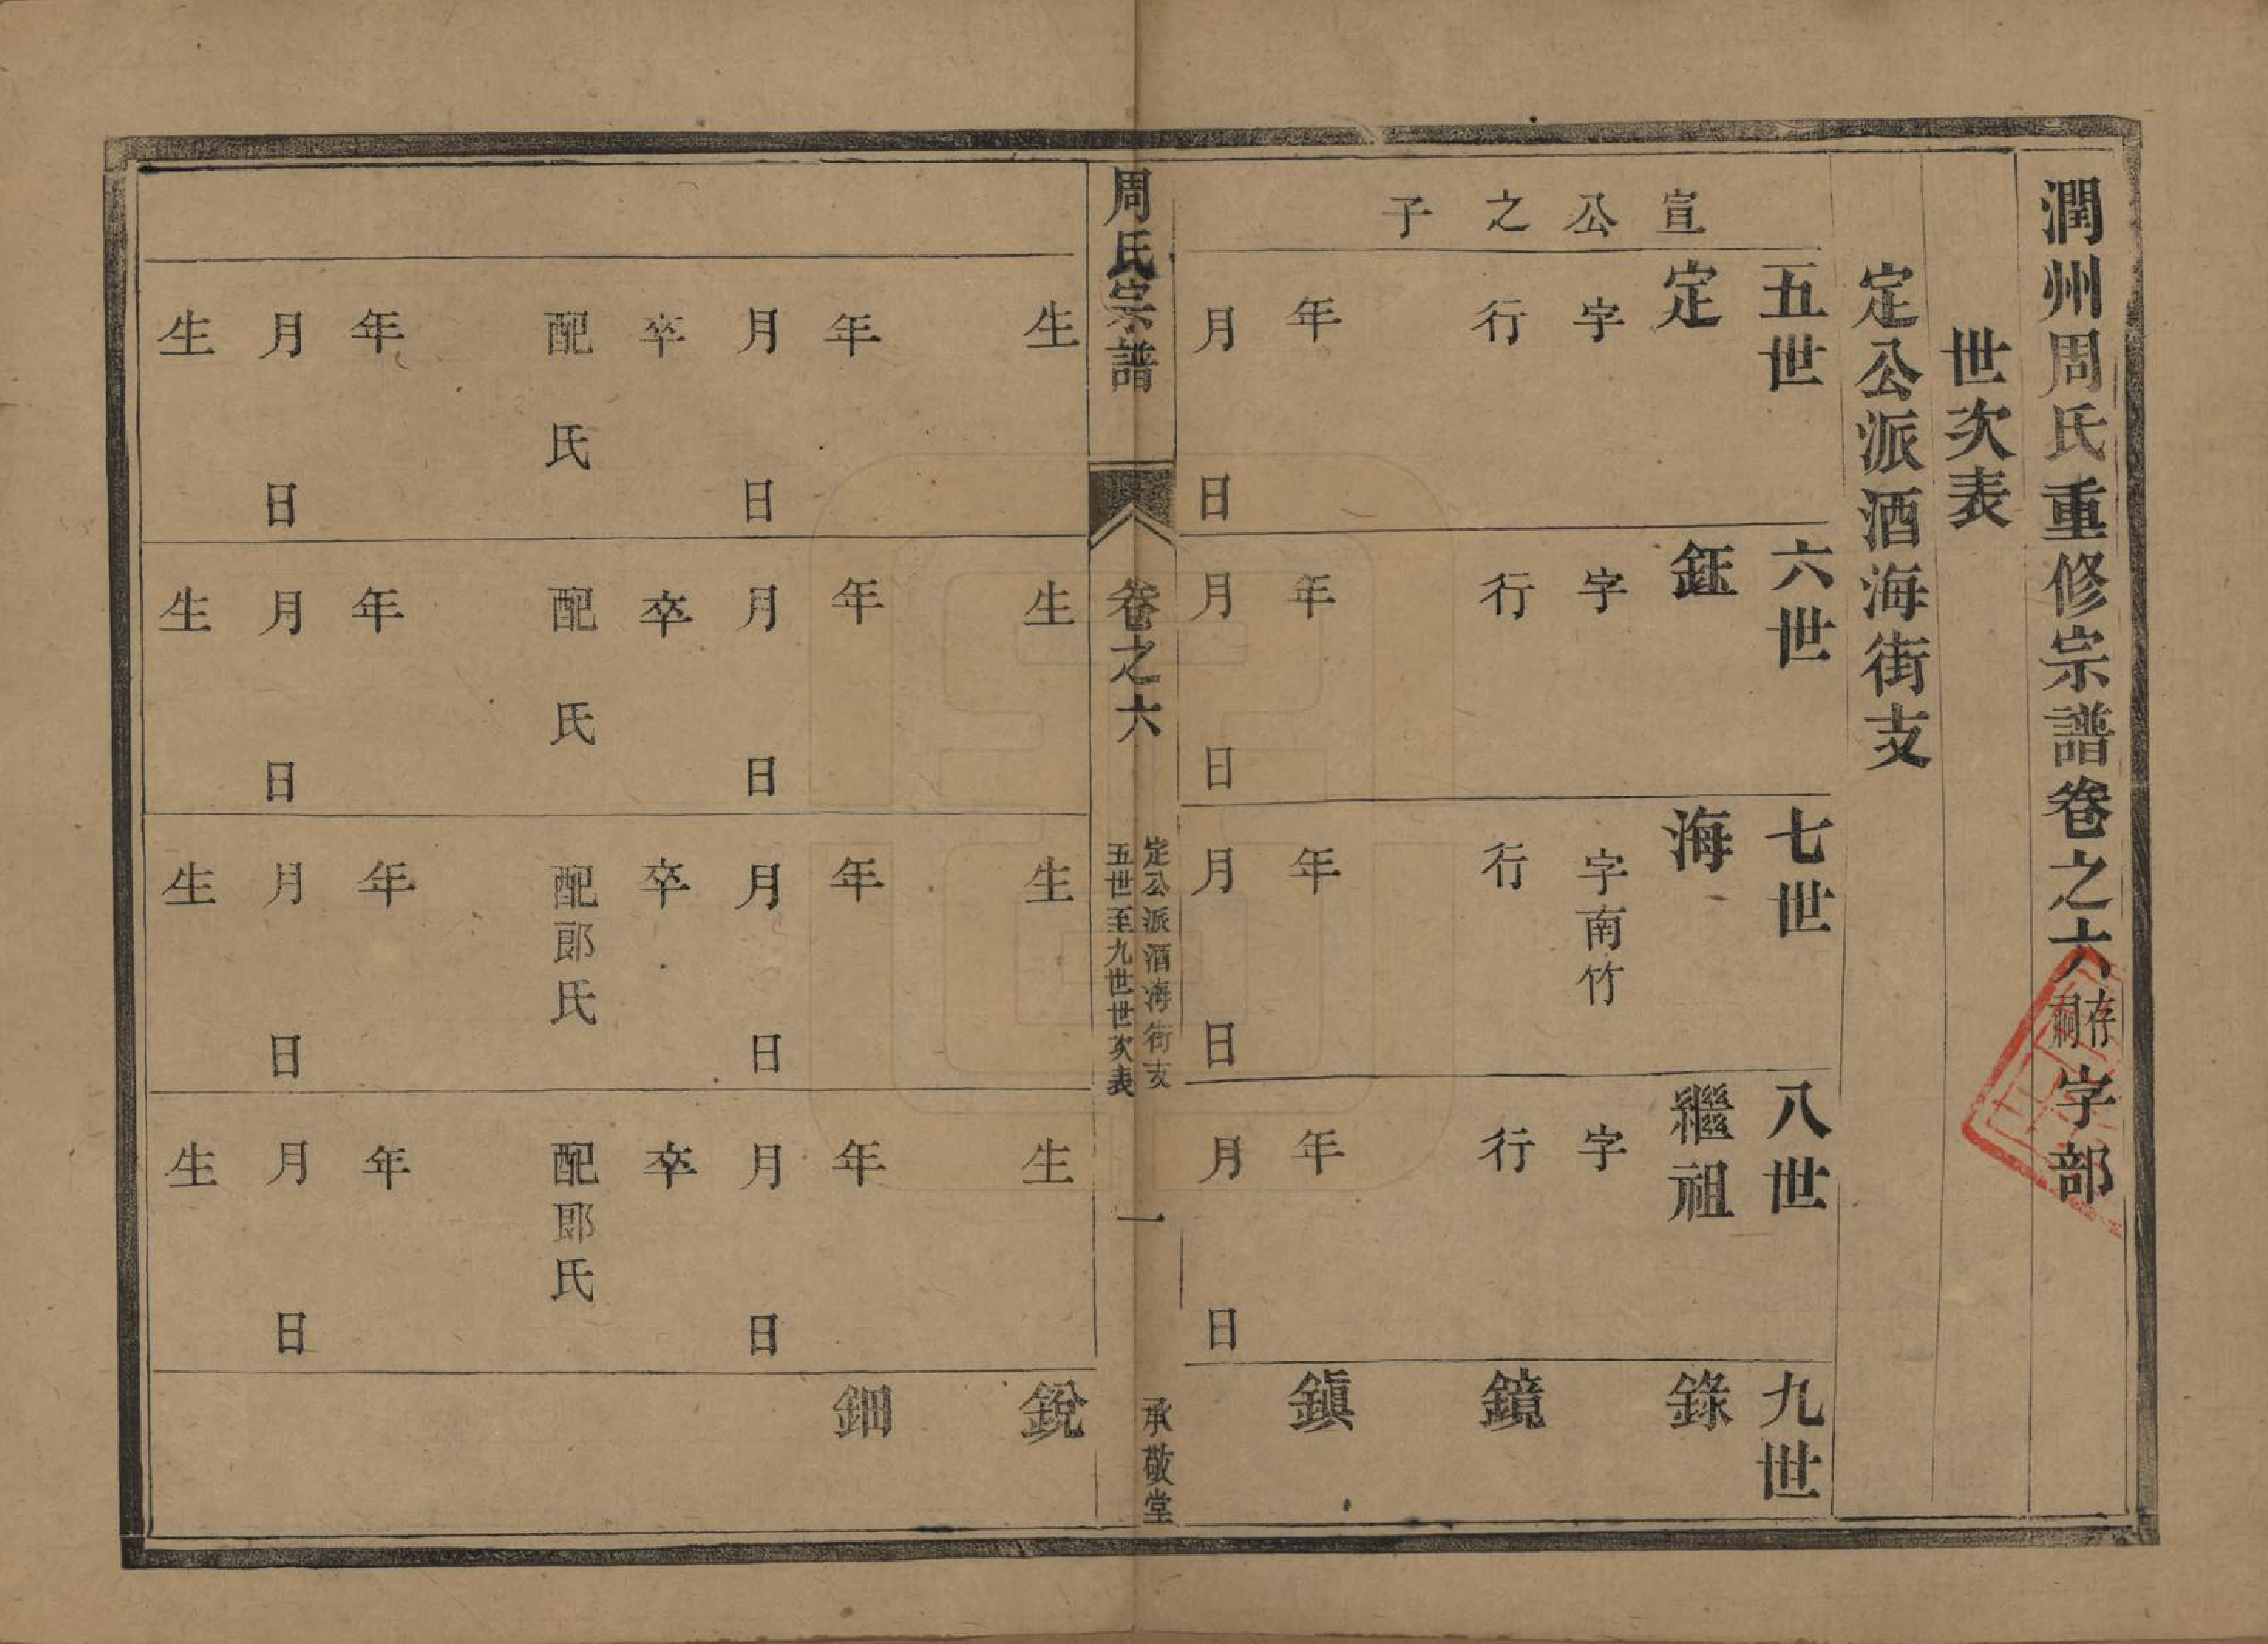 潤州周氏重修宗譜卷之六 存祠 字部
世次表
定公派酒海街支
宣公之子
五世
定
字
行
年
月 日
生
年
月 日
卒
配 氏
年
月 日
生
六世
鈺
字
行
年
月 日
生
年
月 日
卒
配 氏
年
月 日
生
七世
海
字南竹
行
年
月 日
生
年
月 日
卒
配郎氏
年
月 日
生
八世
繼祖
字
行
年
月 日
生
年
月 日
卒
配郎氏
年
月 日
生
九世
錄
鏡
鎮
銳
鈿
周氏宗譜
卷之六
定公派酒海街支
五世至九世世次表
一
承敬堂